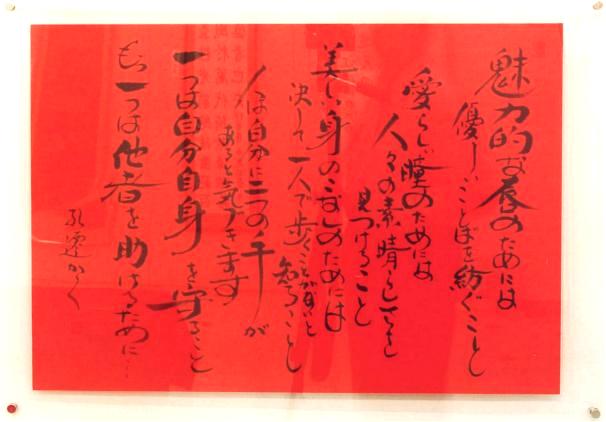 魅力的な唇のためには
優しいことばを紡ぐこと
愛らしい瞳のためには
人々の素晴らしさを
見つけること
美しい身のこなしのためには
決して一人で歩くことがないと
知ること
人は自分に二つの手が
あると気づきます
一つは自分自身を守ること
もう一つは他者を助けるために…
かく